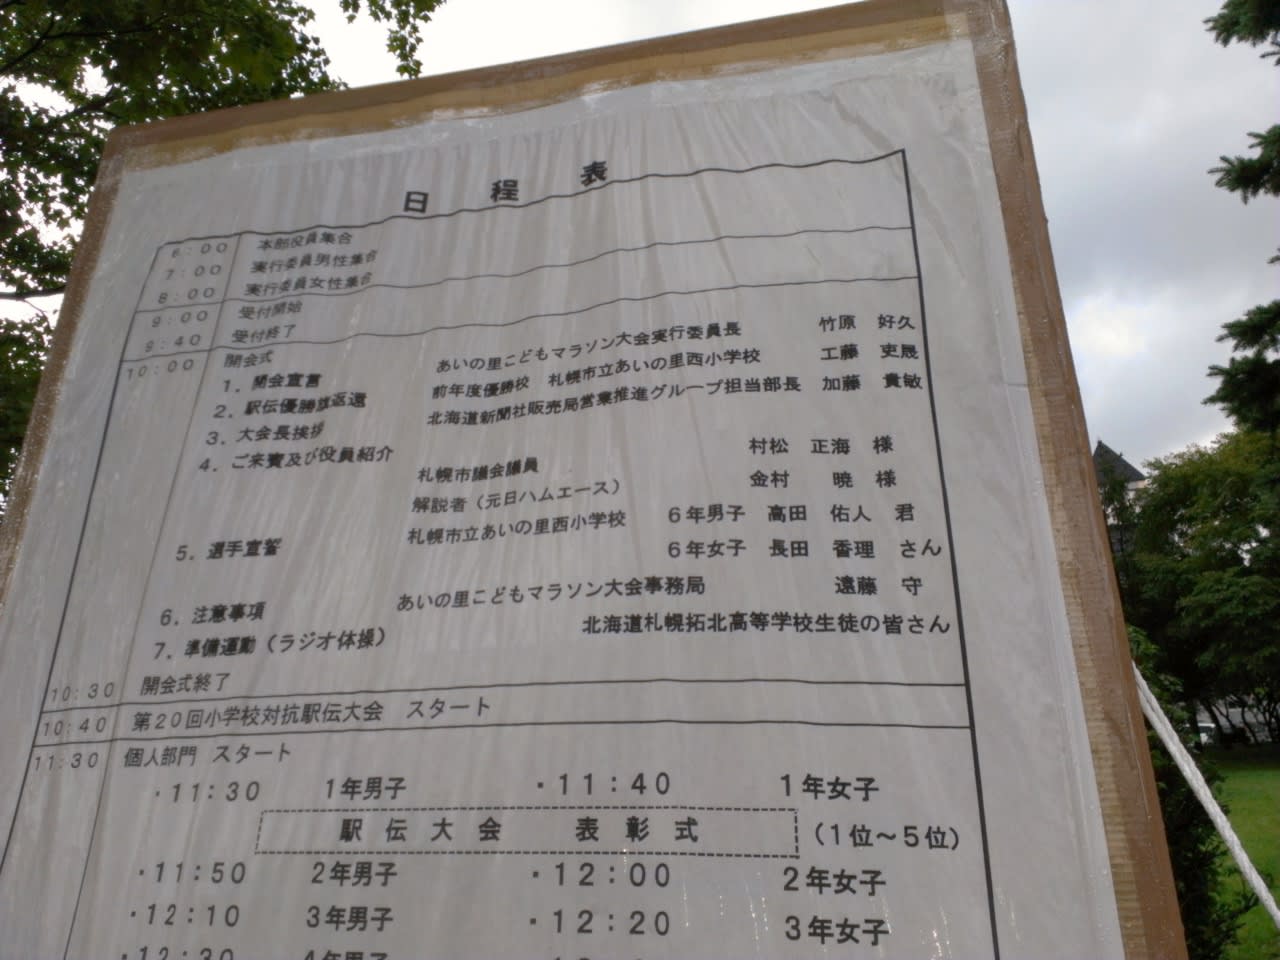 日 程 表
6:00 本部役員集合
7:00 実行委員男性集合
8:00 実行委員女性集合
9:00 受付開始
9:40 受付終了
10:00 開会式
1. 開会宣言 あいの里こどもマラソン大会実行委員長 竹原 好久
2. 駅伝優勝旗返還 前年度優勝校 札幌市立あいの里西小学校 工藤 吏晟
3. 大会長挨拶 北海道新聞社販売局営業推進グループ担当部長 加藤 貴敏
4. ご来賓及び役員紹介
札幌市議会議員 村松 正海 様
解説者(元日ハムエース) 金村 暁 様
5. 選手宣誓 札幌市立あいの里西小学校 6年男子 高田 佑人 君
6年女子 長田 香理 さん
6. 注意事項 あいの里こどもマラソン大会事務局 遠藤 守
7. 準備運動(ラジオ体操) 北海道札幌拓北高等学校生徒の皆さん
10:30 開会式終了
10:40 第20回小学校対抗駅伝大会 スタート
11:30 個人部門 スタート
・11:30 1年男子 ・11:40 1年女子
駅 伝 大 会 表 彰 式 (1位～5位)
・11:50 2年男子 ・12:00 2年女子
・12:10 3年男子 ・12:20 3年女子
・12:30 4年男子